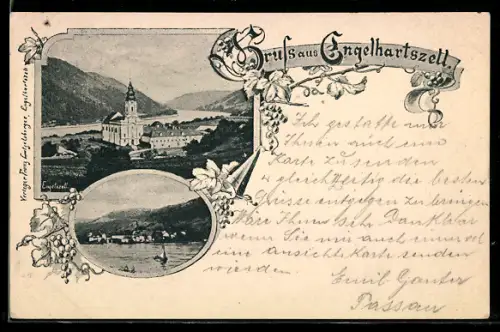 Gruss aus Engelhartszell.
Verlag v. Franz Engelhartszell
Engelszell
Ich gestatte mir
Ihnen auch eine
Karte zusenden
u gleichzeitig die besten
Grüsse entgegen zu bringen
Wäre Ihnen sehr Dankbar
wenn Sie mir auch einmal
eine ansichts Karte senden
würden
Emil Ganter
Passau